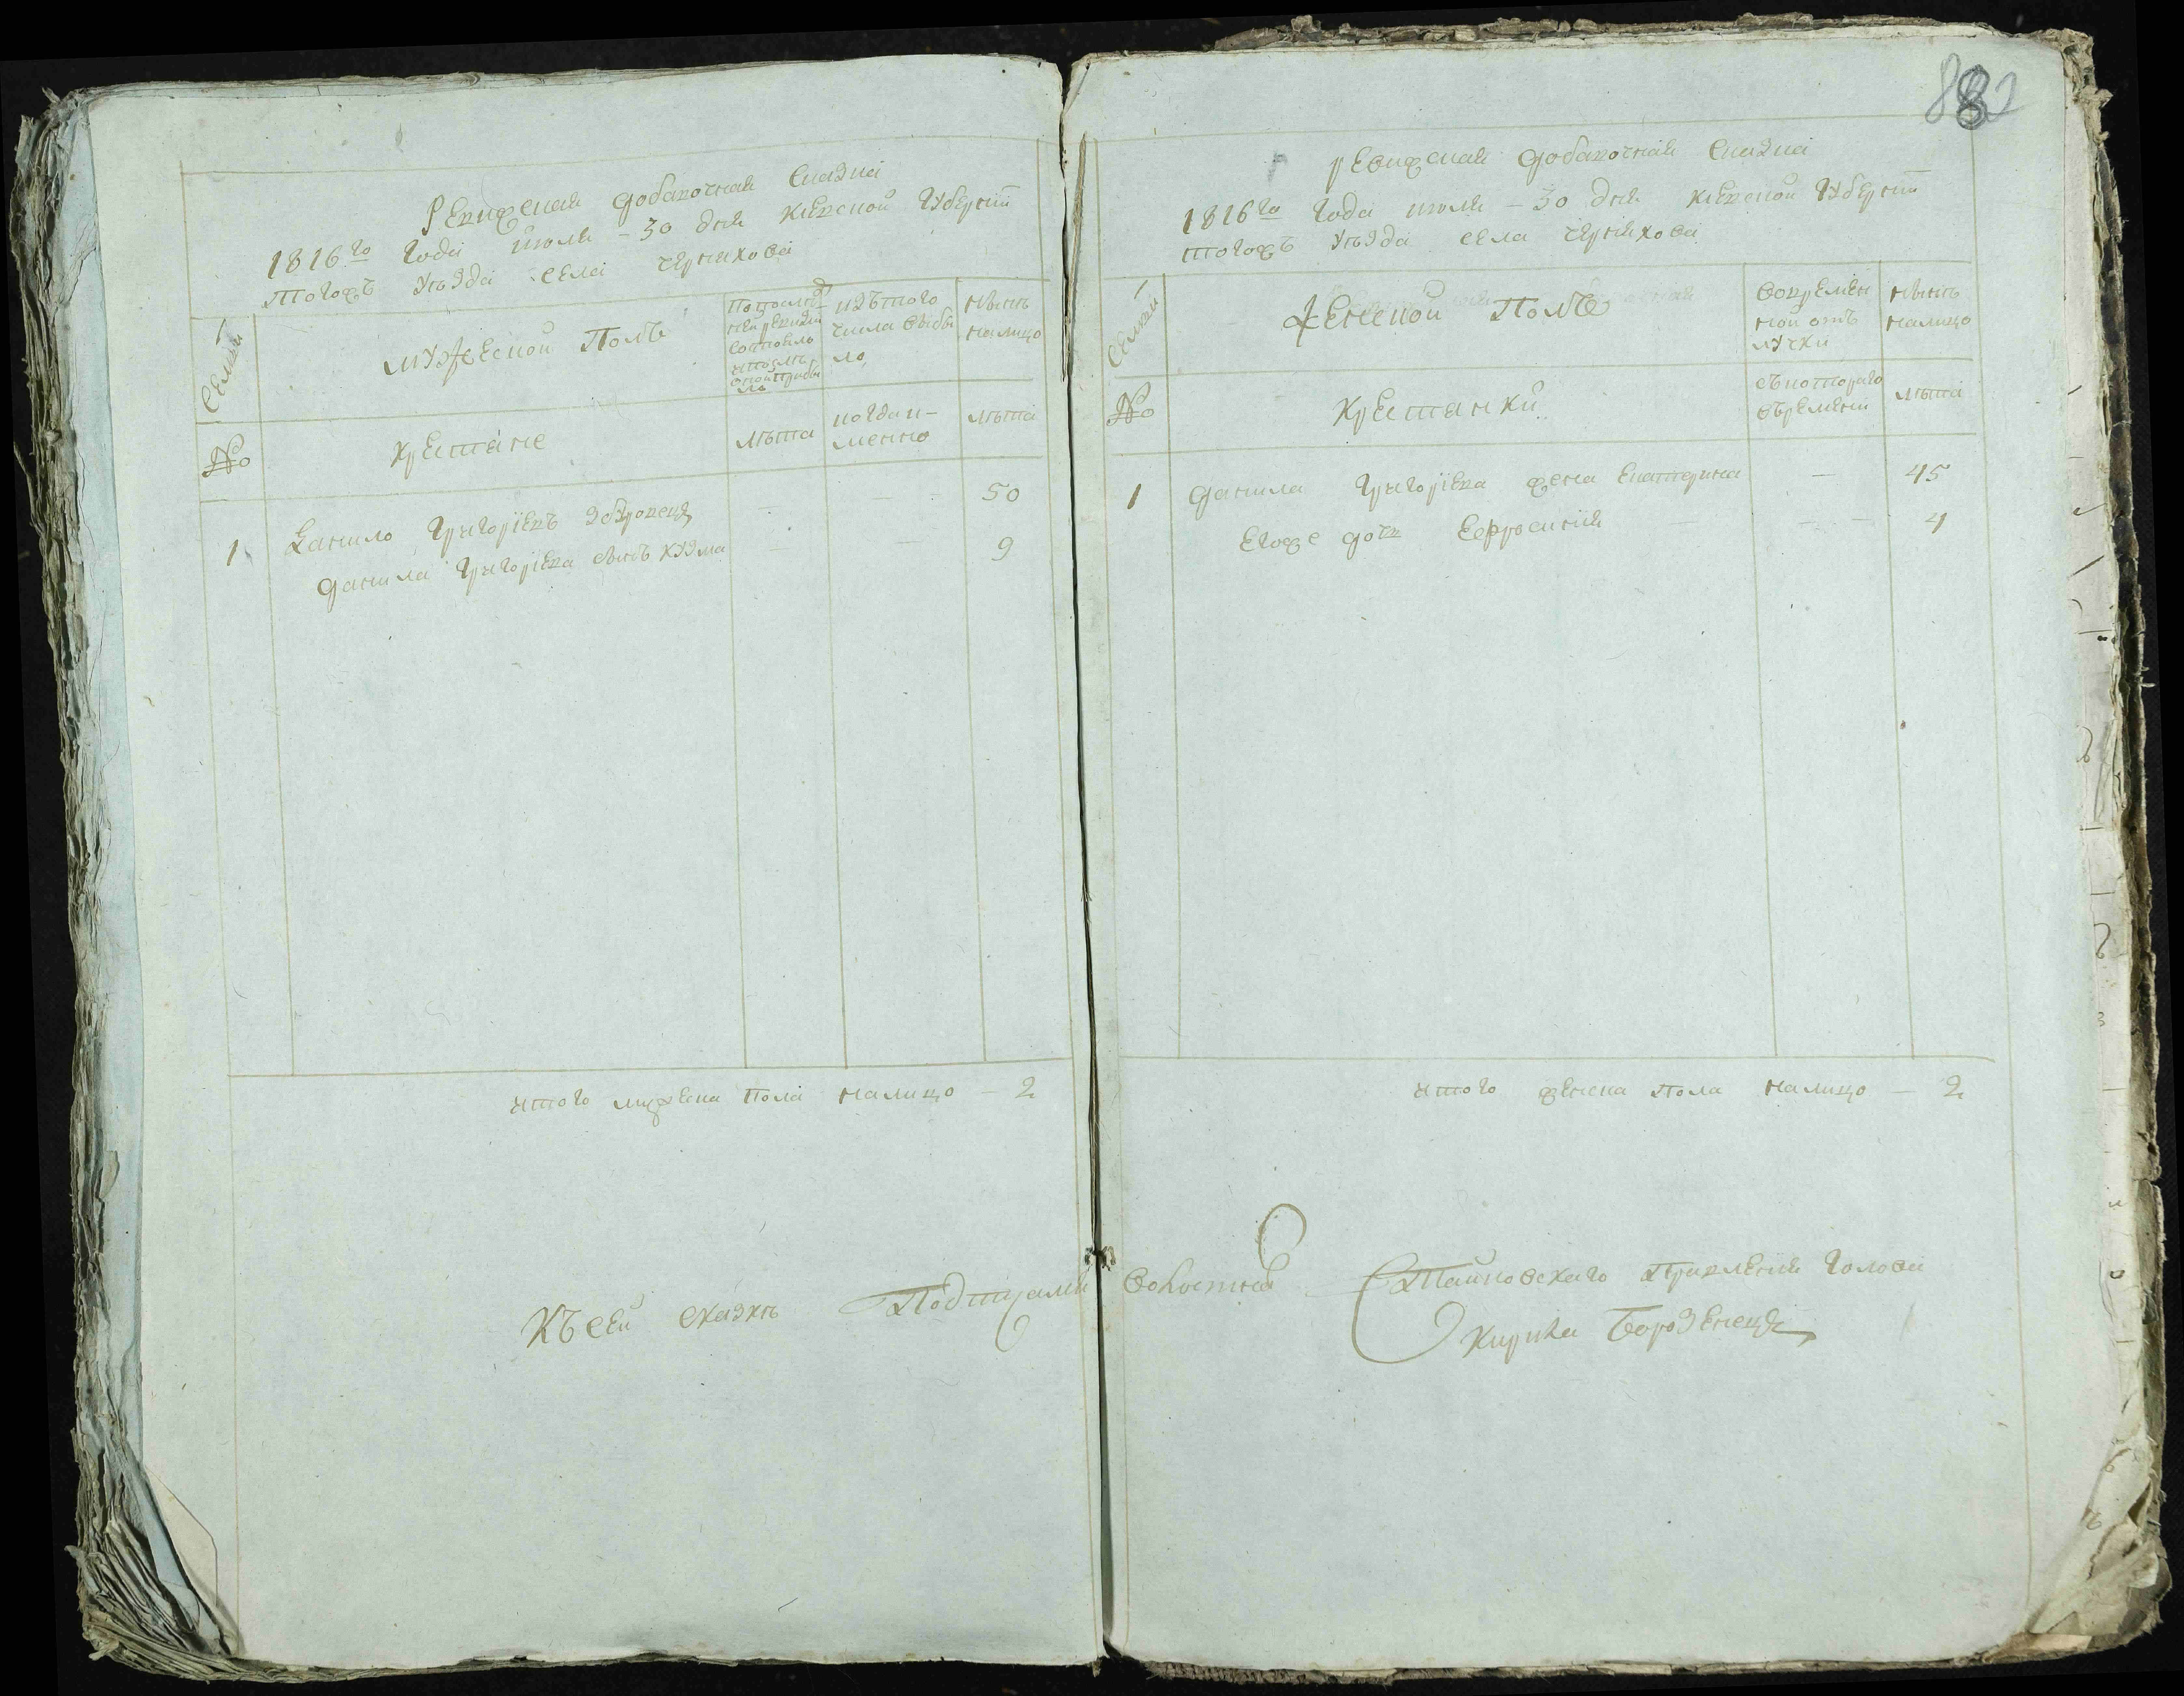 Ревижская добавочная сказка
1816го года июля - 30 дня Киевской губернии
тогожъ уѣзда села Черняхова
Семьи
мужеской полъ
По последней ревизии состояло и после оной прибыло
изъ того числа выбыло
нынѣ налицо
№
крестяне
лѣта
когда именно
лѣта
1 Данило Григорiевъ 50
Данила Григорiева сынъ Кузма — — 9
итого мужеска пола налицо — 2
882
ревижская добавочная сказка
1816го года июля - 30 дня Киевской губернии
тогожъ уѣзда села Черняхова
Семьи
Женской полъ
Вовремянной отлучки
нынѣ налицо
№
крестянки
съ котораго времени
лѣта
1 Данила Григорiева жена Екатерина — 45
Егоже дочь Евфросиния — 4
итого женска пола налицо — 2
Къ сей сказкѣ Волостной Стайковского правления голова
Кирика Бороденець